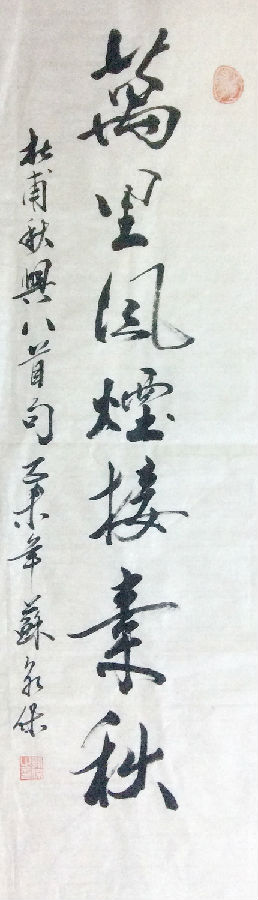 萬里風煙接素秋
杜甫秋興八首句 乙未年 蘇泉保